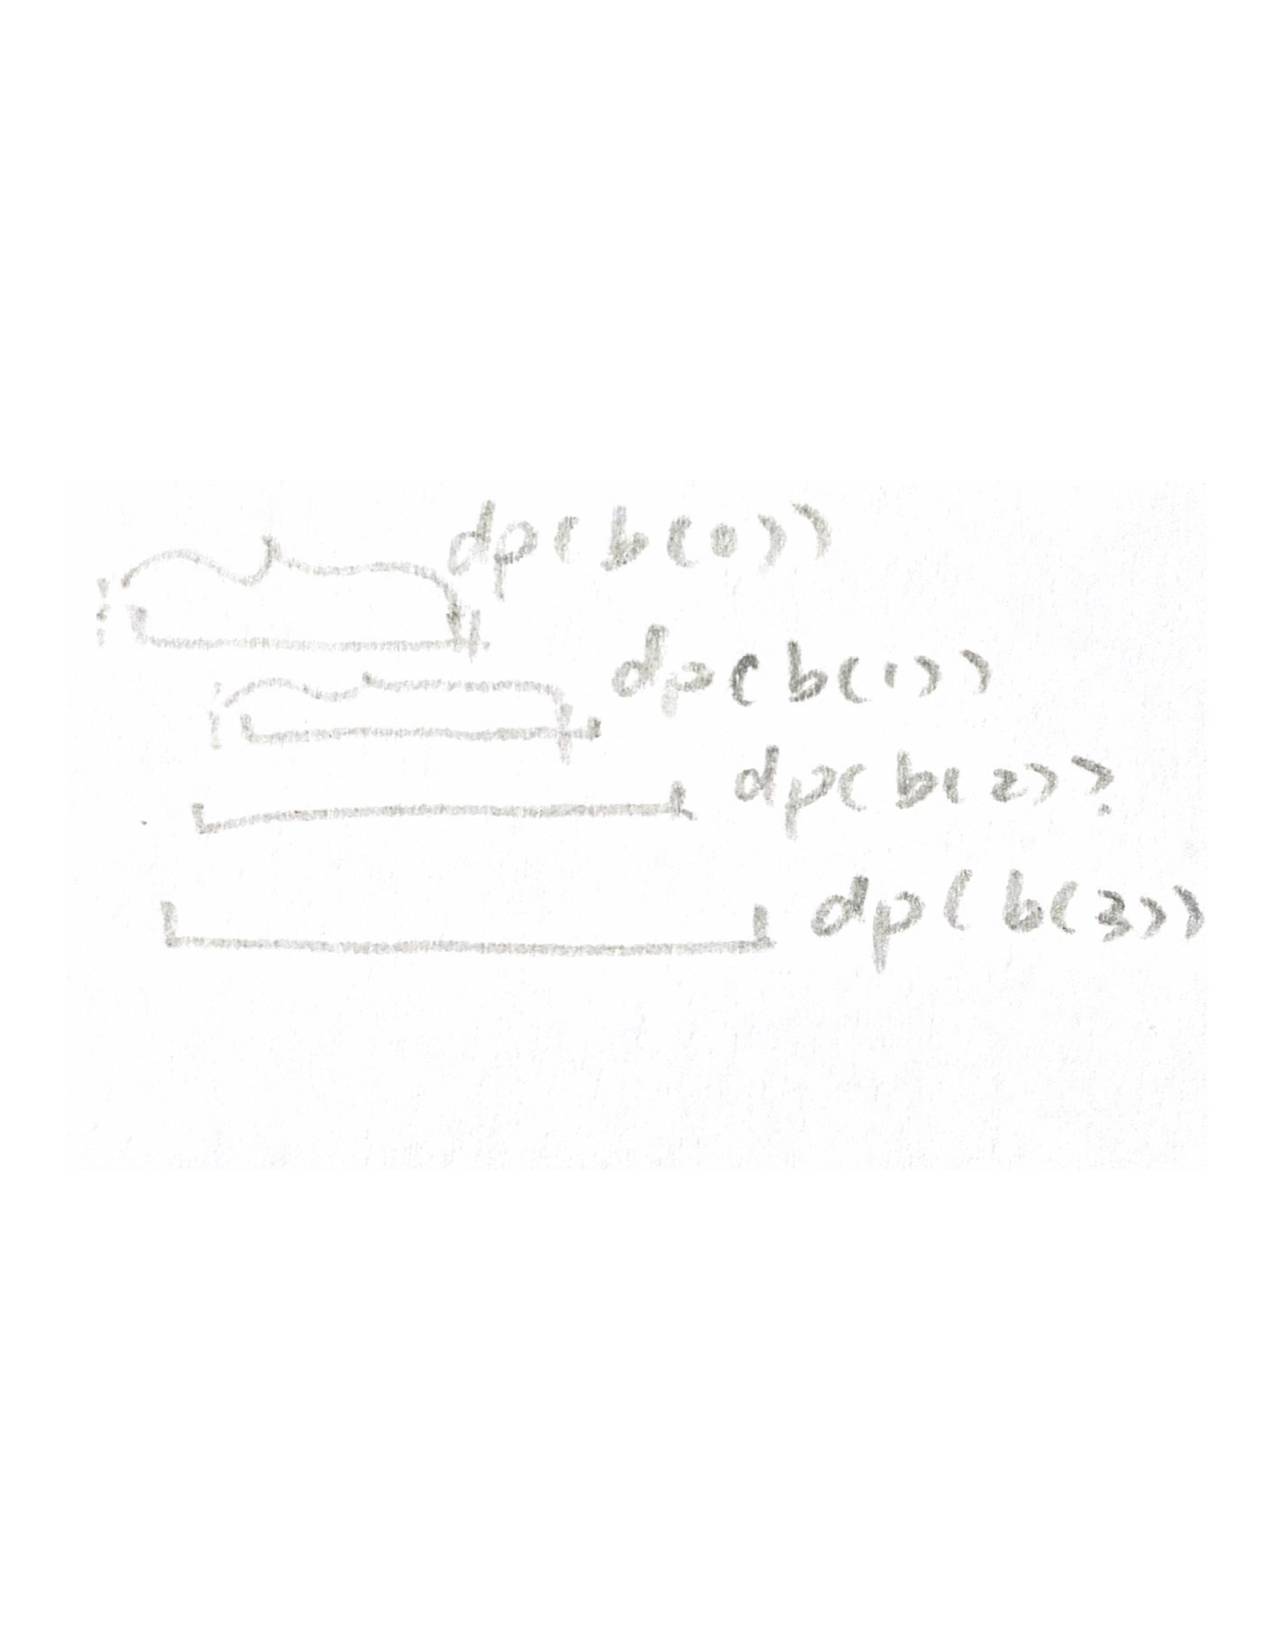 dp(b(0))
dp(b(1))
dp(b(2))
dp(b(3))